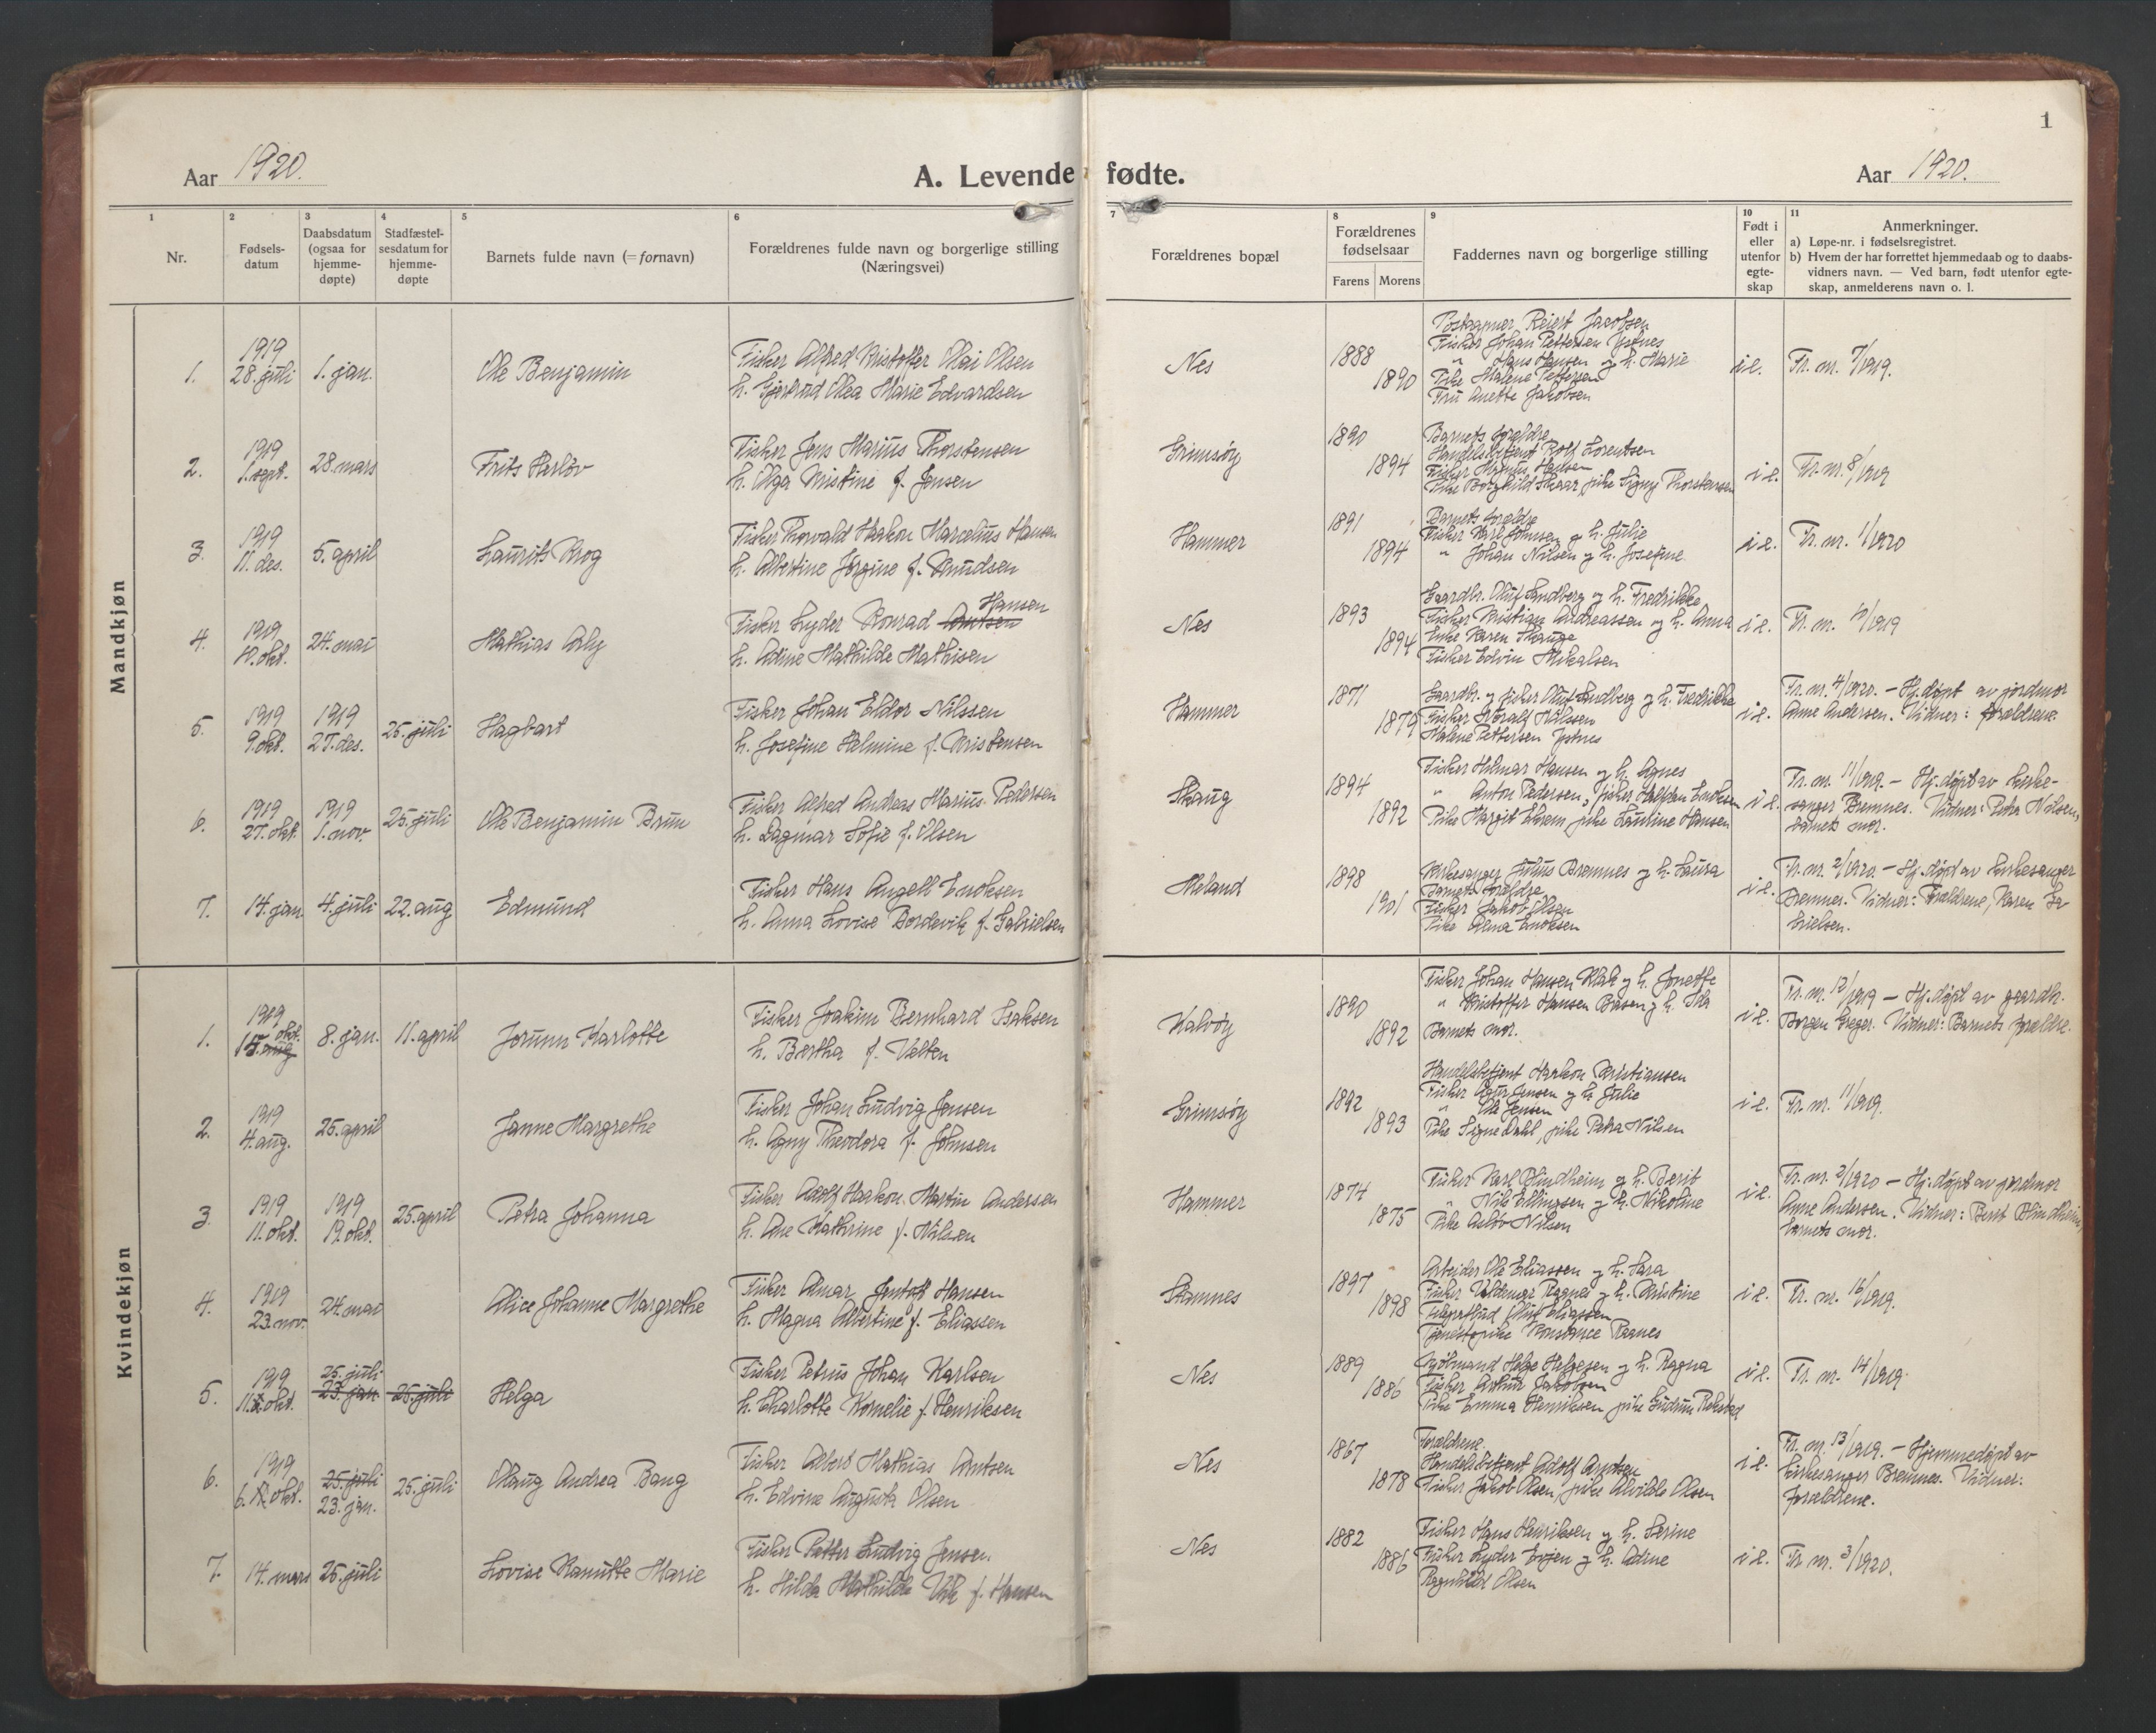 1
Aar 1920.
A. Levende fødte.
Aar 1920.
1
Nr.
2
Fødsels-
datum
3
Daabsdatum
(ogsaa for
hjemme-
døpte)
4
Stadfæstel-
sesdatum for
hjemme-
døpte
5
Barnets fulde navn (= fornavn)
6
Forældrenes fulde navn og borgerlige stilling
(Næringsvei)
7
Forældrenes bopæl
8
Forældrenes
fødselsaar
Farens Morens
9
Faddernes navn og borgerlige stilling
10
Født i
eller
utenfor
egte-
skap
11
Anmerkninger.
a) Løpe-nr. i fødselsregistret.
b) Hvem der har forrettet hjemmedaab og to daabs-
vidners navn. — Ved barn, født utenfor egte-
skap, anmelderens navn o. l.
Mandkjøn
1.
1919
28. juli
1. jan.
Ole Benjamin
Fisker Alfred Kristoffer Olai Olsen
h. Gjertrud Olea Marie Edvardsen
Nes
1888
1890
Postaapner Reiert Jacobsen
Fisker Johan Pettersen Ystnes
" Hans Hansen og h. Marie
Pike Malene Pettersen
Fru Anette Jakobsen
i e.
Fr. nr. 7/1919.
2.
1919
1. sept.
28. mars
Frits Harlöv
Fisker Jens Marius Thorstensen
h. Olga Kristine f. Jensen
Grimsöy
1890
1894
Barnets forældre
Handelsbetjent Rolf Lorentsen
Fisker Magnus Hansen
Pike Borghild Skaar, pike Signy Thorstensen
i e.
Fr. nr. 8/1919
3.
1919
11. des.
5. april
Laurits Krog
Fisker Thorvald Haakon Marcelius Hansen
h. Albertine Jørgine f. Knudsen
Hammer
1891
1894
Barnets forældre
Fisker Karl Johnsen og h. Julie
" Johan Nilsen og h. Josefine
i e.
Fr. nr. 1/1920
4.
1919
10. okt.
24. mai
Mathias Arly
Hansen
Fisker Lyder Konrad Arntsen
h. Adine Mathilde Mathisen
Nes
1893
1894
Gaardbr. Oluf Sandberg og h. Fredrikke
Fisker Kristian Andreassen og h. Anna
Enke Karen Skauge
Fisker Edvin Mikalsen
i e.
Fr. nr. 10/1919
5.
1919
9. okt.
1919
27. des.
25. juli
Hagbart
Fisker Johan Eldor Nilssen
h. Josefine Helmine f. Kristensen
Hammer
1871
1879
Gaardbr. og fisker Oluf Sandberg og h. Fredrikke
Fisker Harald Nilssen
Malene Pettersen Ystnes
i e.
Fr. nr. 4/1920. — Hj.døpt av jordmor
Anne Andersen. Vidner: forældrene.
6.
1919
27. okt.
1919
1. nov.
25. juli
Ole Benjamin Brun
Fisker Alfred Andreas Marius Pedersen
h. Dagmar Sofie f. Olsen
Skaug
1894
1892
Fisker Hilmar Hansen og h. Agnes
" Anton Pedersen, fisker Halfdan Enoksen
Pike Margit Ekrem, pike Lautine Hansen
i e.
Fr. nr. 11/1919. — Hj.døpt av kirke-
sanger Bremnes. Vidner: Petra Nilsen,
barnets mor.
7.
14. jan.
4. juli
22. aug
Edmund
Fisker Hans Angell Enoksen
h. Anna Lovise Bordevik f. Gabrielsen
Meland
1898
1901
Kirkesanger Julius Bremnes og h. Laura
Barnets forældre
Fisker Jakob Olsen
Pike Alma Enoksen
i e.
Fr. nr. 2/1920. — Hj.døpt av kirkesanger
Bremnes. Vidner: Forældrene, Karen Ga
brielsen.
Kvindekjøn
1.
1919
okt.
15. aug
8. jan.
11. april
Jorunn Karlotte
Fisker Joakim Bernhard Isaksen
h. Bertha f. Velten
Kalvöy
1890
1892
Fisker Johan Hansen Klak og h. Jonette
" Kristoffer Hansen Braseng h. Ida
Barnets mor.
i e.
Fr. nr. 12/1919 — Hj.døpt av gaardbr.
Borgen Greger. Vidner: Barnets forældre.
2.
1919
4. aug.
25. april
Janne Margrethe
Fisker Johan Ludvig Jensen
h. Agny Theodora f. Johnsen
Grimsöy
1892
1893
Handelsbetjent Haakon Kristiansen
Fisker Agur Jensen og h. Julie
" Ole Jensen
Pike Signe Dahl, pike Petra Nilsen
i e.
Fr. nr. 11/1919.
3.
1919
11. okt.
1919
19. okt.
25. april
Petra Johanna
Fisker Adolf Haakon Martin Andersen
h. Ane Kathrine f. Nilsen
Hammer
1874
1875
Fisker Karl Blindheim og h. Berit
" Nils Ellingsen og h. Nikoline
Pike Aslöv Nilsen
i e.
Fr. nr. 2/1920 — Hj.døpt av jordmor
Anne Andersen. Vidner: Berit Blindheim,
barnets mor.
4.
1919
23. nov.
24. mai
Alice Johanne Margrethe
Fisker Almar Jentoft Hansen
h. Magna Albertine f. Eliassen
Stamnes
1897
1898
Arbeider Ole Eliassen og h. Sara
Fisker Valdemar Raanes og h. Kristine
Telegrafbud Oluf Eliassen
Tjenestepike Konstanse Raanes
i e.
Fr. nr. 16/1919.
5.
1919
11. okt.
25. juli
23. jan.
25. juli
Helga
Fisker Petrus Johan Karlsen
h. Charlotte Kornelie f. Henriksen
Nes
1889
1886
Sjömand Helge Helgesen og h. Ragna
Fisker Arthur Jakobsen
Pike Emma Henriksen, pike Gudrun Rekstad
i e.
Fr. nr. 14/1919.
6.
1919
6. okt.
25. juli
23. jan.
25. juli
Olaug Andrea Bang
Fisker Albert Mathias Arntsen
h. Edvine Augusta Olsen
Nes
1867
1878
Forældrene.
Handelsbetjent Adolf Arntsen
Fisker Jakob Olsen, pike Alvilde Olsen
i e.
Fr. nr. 13/1919. — Hjemmedøpt av
kirkesanger Bremnes. Vidner:
forældrene.
7.
14. mars
25. juli
Lovise Ranutte Marie
Fisker Petter Ludvig Jensen
h. Hilda Mathilde Vik f. Hansen
Nes
1882
1886
Fisker Hans Henriksen og h. Serine
Fisker Lyder Evjen og h. Adine
Ragnhild Olsen
i e.
Fr. nr. 3/1920.